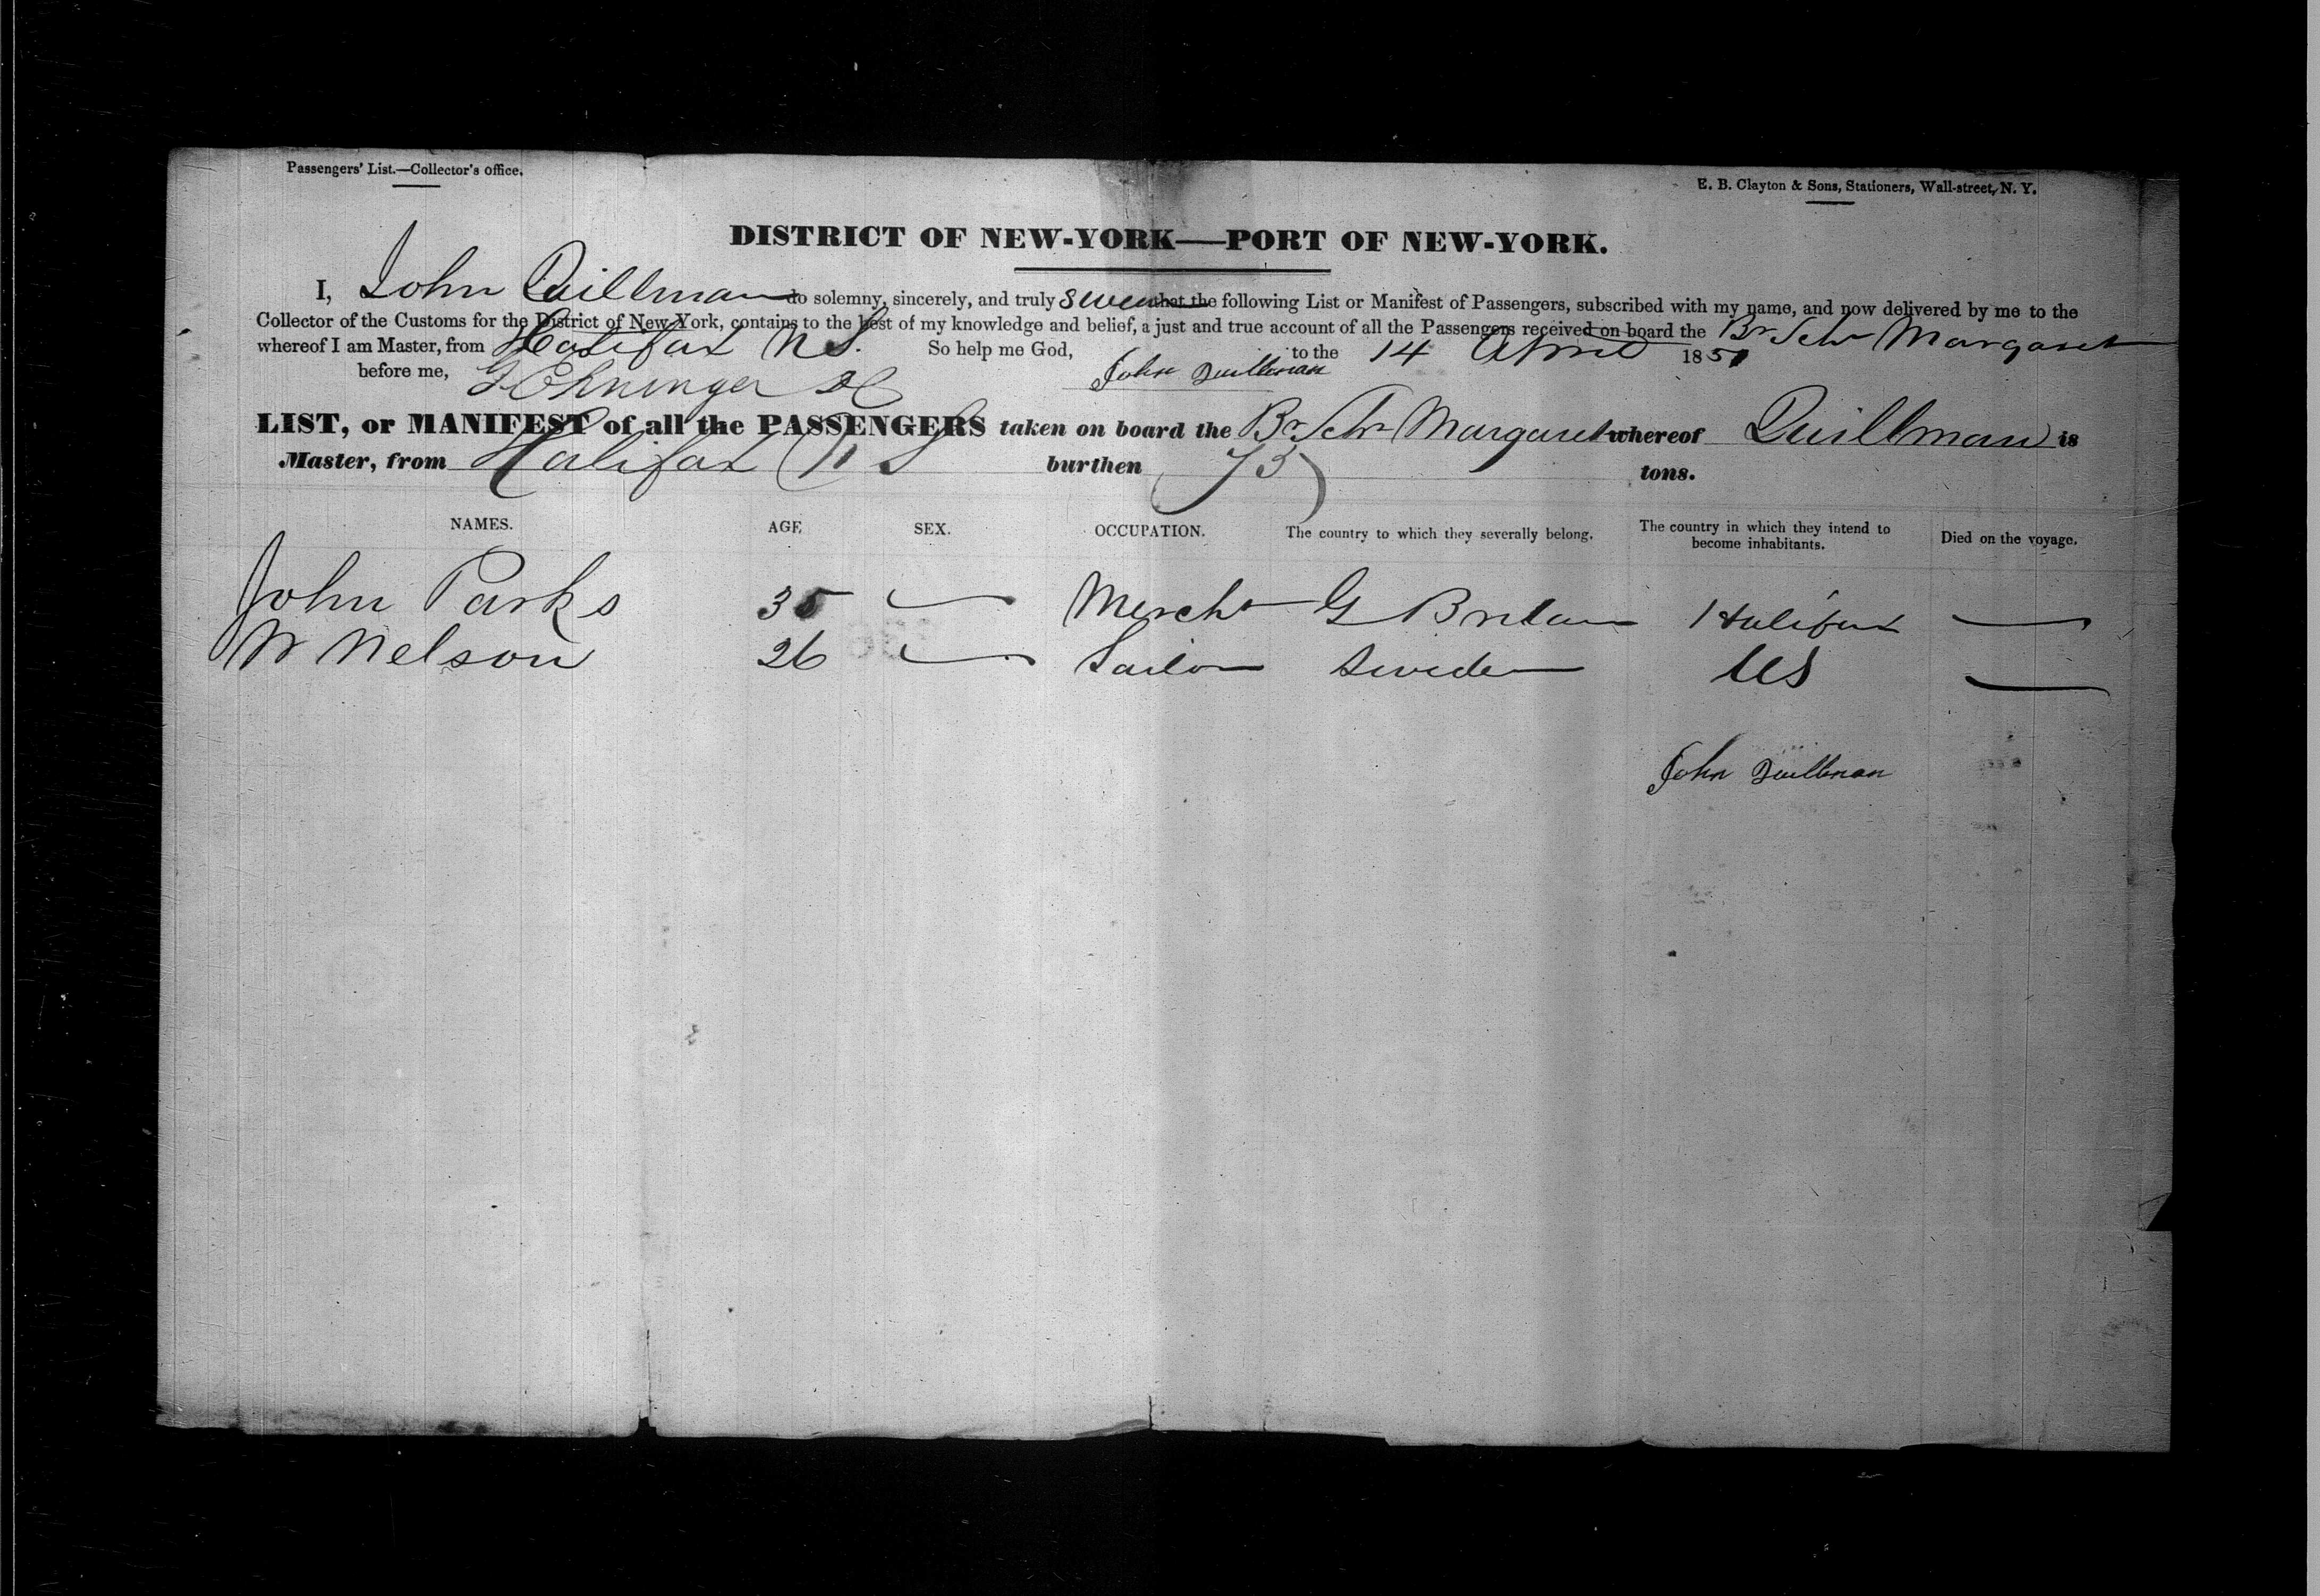 Passengers' List.—Collector's office.
E. B. Clayton & Sons, Stationers, Wall-street, N. Y.
DISTRICT OF NEW-YORK—PORT OF NEW-YORK.
I, John Quillman do solemny, sincerely, and truly swear that the following List or Manifest of Passengers, subscribed with my name, and now delivered by me to the
Collector of the Customs for the District of New-York, contains to the best of my knowledge and belief, a just and true account of all the Passengers received on board the Br Schr Margaret
whereof I am Master, from Halifax N S. So help me God, to the 14 April 1851
before me, John Quillman
LIST, or MANIFEST of all the PASSENGERS taken on board the Br Schr Margaret whereof Quillman is
Master, from Halifax N S burthen 73 tons.
NAMES. AGE SEX. OCCUPATION. The country to which they severally belong. The country in which they intend to become inhabitants. Died on the voyage.
John Parks 35 — Mercht G Britain Halifax —
W Nelson 26 — Sailor Sweden US —
John Quillman